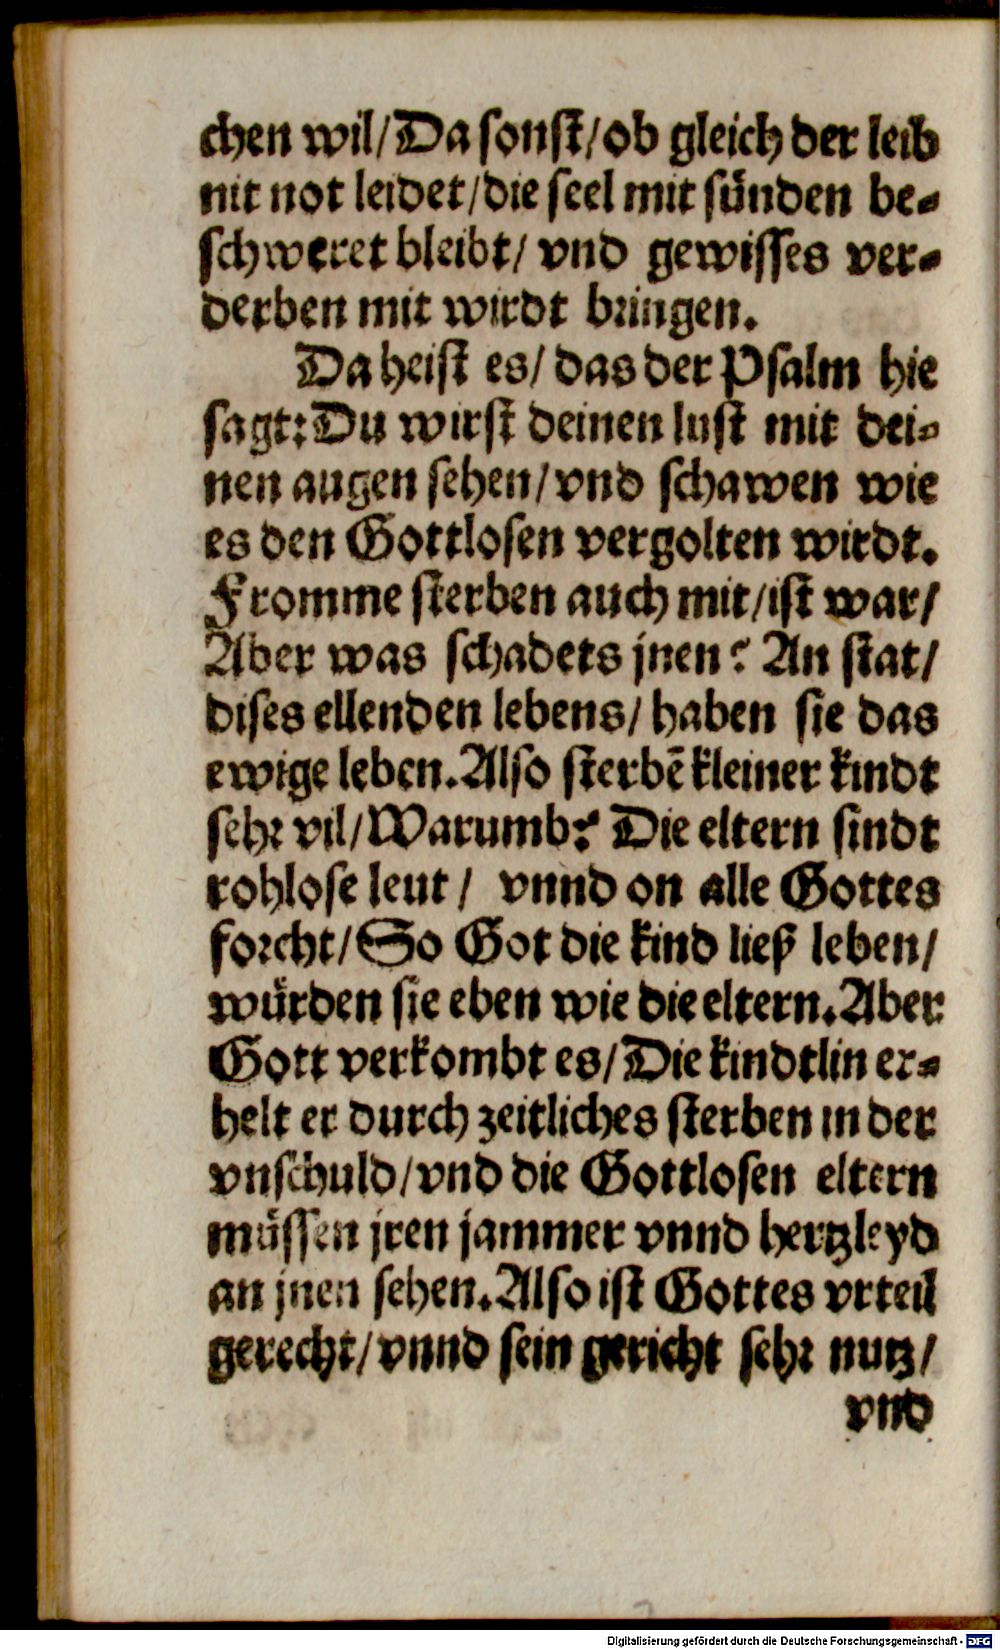 chen wil/Da sonst/ob gleich der leib
nit not leidet/die seel mit sünden be-
schweret bleibt/ vnd gewisses ver-
derben mit wirdt bringen.
Da heist es/ das der Psalm hie
sagt:Du wirst deinen lust mit dei-
nen augen sehen/vnd schawen wie
es den Gottlosen vergolten wirdt.
Fromme sterben auch mit/ist war/
Aber was schadets jnen? An stat/
dises ellenden lebens/ haben sie das
ewige leben.Also sterbē kleiner kindt
sehr vil/Warumb? Die eltern sindt
rohlose leut/ vnnd on alle Gottes
forcht/So Got die kind ließ leben/
würden sie eben wie die eltern.Aber
Gott verkombt es/Die kindtlin er-
helt er durch zeitliches sterben in der
vnschuld/vnd die Gottlosen eltern
müssen jren jammer vnnd hertzleyd
an jnen sehen.Also ist Gottes vrteil
gerecht/vnnd sein gericht sehr nutz/
vnd
Digitalisierung gefördert durch die Deutsche Forschungsgemeinschaft - DFG